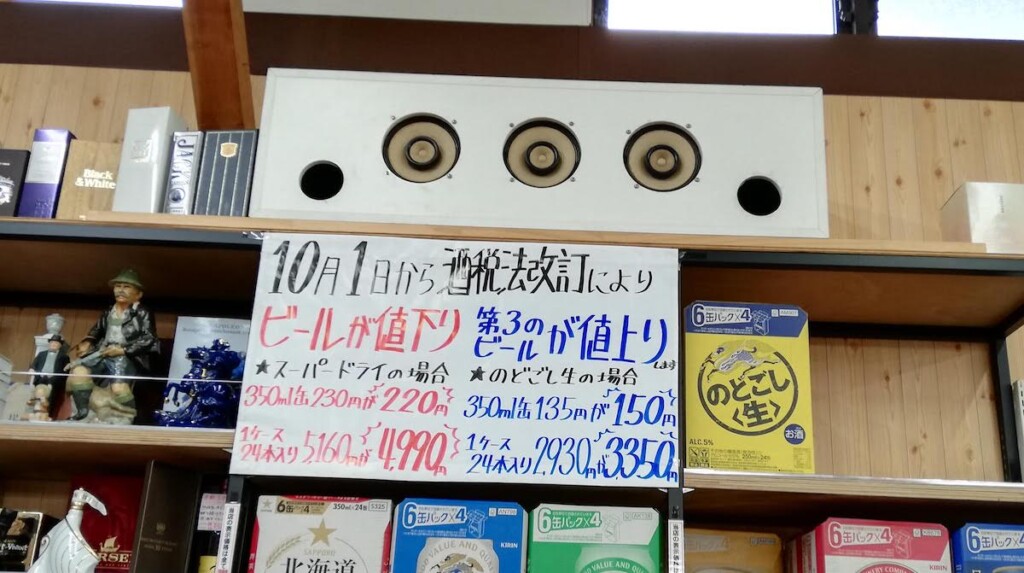 Black
& White
10月1日から酒税法改訂により
ビールが値下り
★スーパードライの場合
350ml缶230円が220円
1ケース
24本入り 5,160円が4,990円
第3の
ビールが値上り
します
★のどごし生の場合
350ml缶135円が150円
1ケース
24本入り 2,930円が3,350円
6缶パック×4
のどごし
〈生〉
お酒
ALC.5%
6缶パック×4
350ml×24缶
SAPPORO
北海道
6缶パック×4
KIRIN
VALUE AND QU
6缶パック×4
VALUE AND QU
6缶パック×4
KIRIN
6缶パック×4